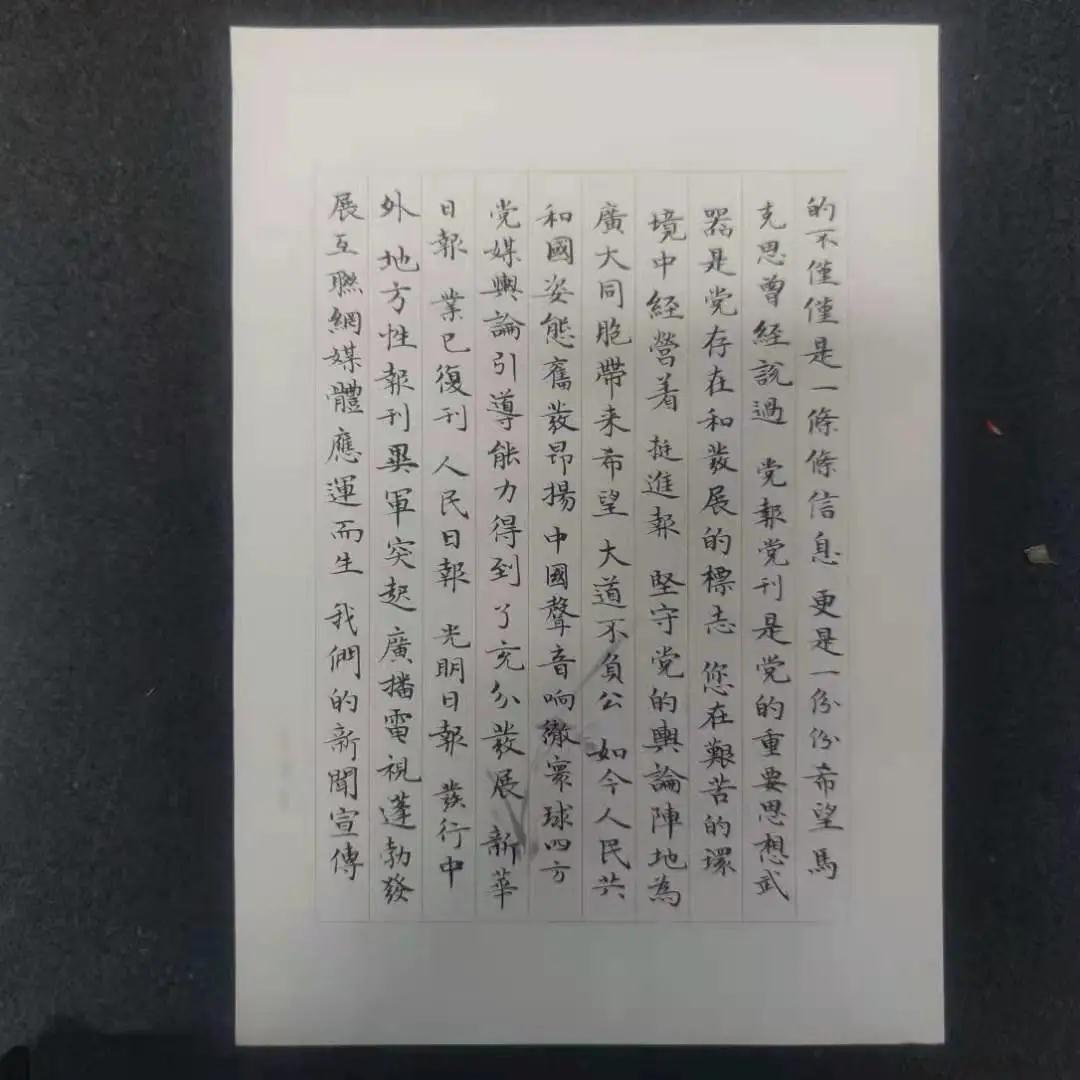 的不僅僅是一條條信息 更是一份份希望馬
克思曾經說過 党報党刊是党的重要思想武
器是党存在和發展的標志 您在艱苦的環
境中經營着 挺進報 堅守党的輿論陣地為
廣大同胞帶来希望 大道不負公 如今人民共
和國姿態奮發昂揚 中國聲音响徹寰球四方
党媒輿論引導能力得到了充分發展 新華
日報 業已復刊 人民日報 光明日報 發行中
外 地方性報刊異軍突起廣播電視蓬勃發
展互聯網媒體應運而生 我們的新聞宣傳